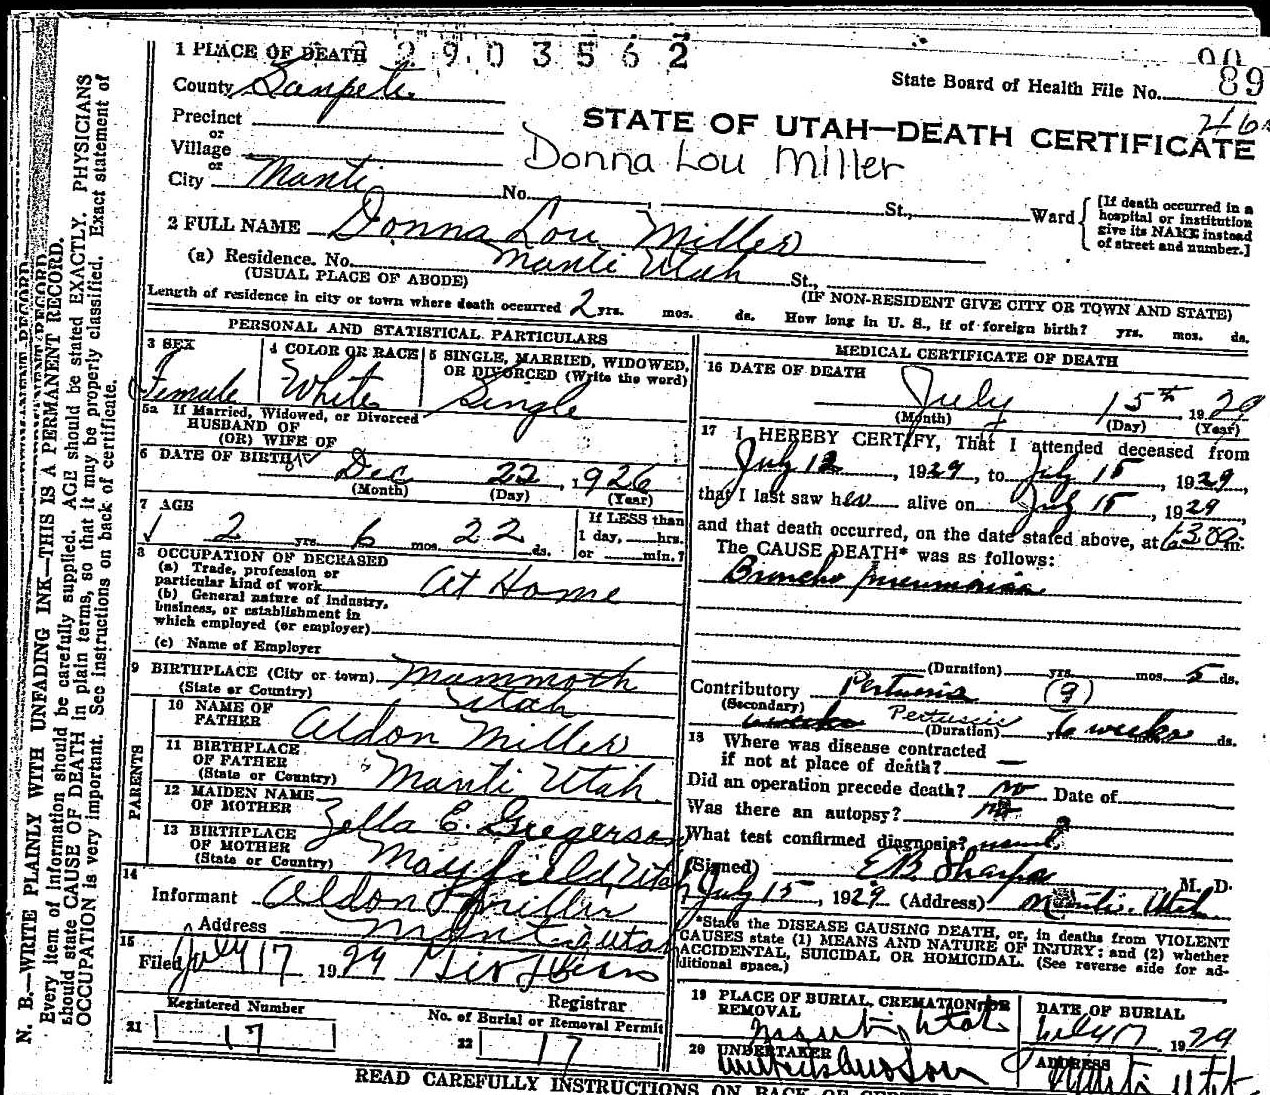 1 PLACE OF DEATH 2903562
State Board of Health File No. 89
County Sanpete
STATE OF UTAH—DEATH CERTIFICATE
Precinct
or
Village
or
Donna Lou Miller
City Manti No. St., Ward
[If death occurred in a
hospital or institution
give its NAME instead
of street and number.]
2 FULL NAME Donna Lou Miller
(a) Residence. No. Manti Utah St.,
(USUAL PLACE OF ABODE) (IF NON-RESIDENT GIVE CITY OR TOWN AND STATE)
Length of residence in city or town where death occurred 2 yrs. mos. ds. How long in U. S., if of foreign birth? yrs. mos. ds.
PERSONAL AND STATISTICAL PARTICULARS
3 SEX
Female
4 COLOR OR RACE
White
5 SINGLE, MARRIED, WIDOWED,
OR DIVORCED (Write the word)
Single
5a If Married, Widowed, or Divorced
HUSBAND OF
(OR) WIFE OF
6 DATE OF BIRTH
Dec 22, 1926
(Month) (Day) (Year)
7 AGE
2 yrs. 6 mos. 22 ds.
If LESS than
1 day, hrs.
or min.?
8 OCCUPATION OF DECEASED
(a) Trade, profession or
particular kind of work At Home
(b) General nature of industry,
business, or establishment in
which employed (or employer)
(c) Name of Employer
9 BIRTHPLACE (City or town) Mammoth
(State or Country) Utah
PARENTS
10 NAME OF
FATHER Aldon Miller
11 BIRTHPLACE
OF FATHER
(State or Country) Manti Utah
12 MAIDEN NAME
OF MOTHER Zella E. Gregerson
13 BIRTHPLACE
OF MOTHER
(State or Country) Mayfield Utah
14
Informant Aldon Miller
Address Manti Utah
15
Filed July 17 1929
Registrar
Registered Number
21 17
No. of Burial or Removal Permit
22 17
MEDICAL CERTIFICATE OF DEATH
16 DATE OF DEATH
July 15th, 1929
(Month) (Day) (Year)
17 I HEREBY CERTIFY, That I attended deceased from
July 12, 1929, to July 15, 1929,
that I last saw her alive on July 15, 1929,
and that death occurred, on the date stated above, at m.
The CAUSE DEATH* was as follows:
Broncho pneumonia
(Duration) yrs. mos. 5 ds.
Contributory Pertussis (9)
(Secondary)
Pertussis
(Duration) yrs. 6 weeks mos. ds.
18 Where was disease contracted
if not at place of death? —
Did an operation precede death? no Date of
Was there an autopsy? no
What test confirmed diagnosis? usual
(Signed) E B Sharp M. D.
July 15, 1929 (Address) Manti, Utah
*State the DISEASE CAUSING DEATH, or, in deaths from VIOLENT
CAUSES state (1) MEANS AND NATURE OF INJURY; and (2) whether
ACCIDENTAL, SUICIDAL OR HOMICIDAL. (See reverse side for ad-
ditional space.)
19 PLACE OF BURIAL, CREMATION, OR
REMOVAL
Manti, Utah
DATE OF BURIAL
July 17 1929
20 UNDERTAKER
ADDRESS
Manti Utah
READ CAREFULLY INSTRUCTIONS ON BACK OF
N. B.—WRITE PLAINLY WITH UNFADING INK—THIS IS A PERMANENT RECORD.
Every item of information should be carefully supplied. AGE should be stated EXACTLY. PHYSICIANS
should state CAUSE OF DEATH in plain terms, so that it may be properly classified. Exact statement of
OCCUPATION is very important. See instructions on back of certificate.